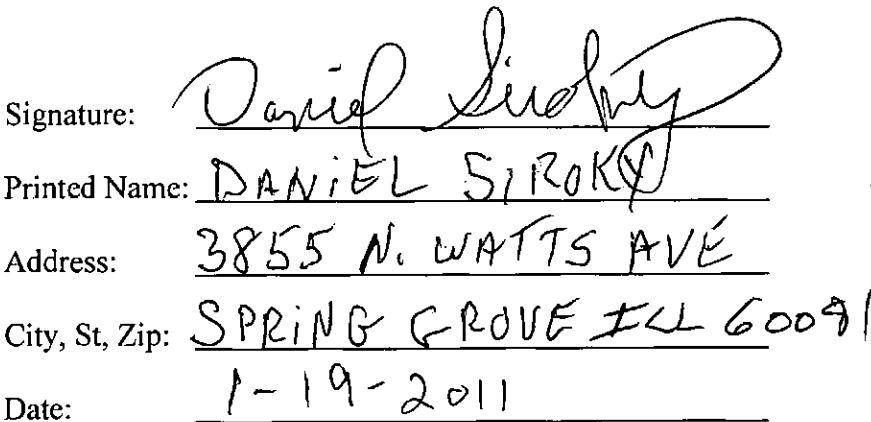 Signature: Daniel Siroky
Printed Name: DANiEL SiROKY
Address: 3855 N. WATTS AVE
City, St, Zip: SPRiNG GROVE ILL 60081
Date: 1-19-2011